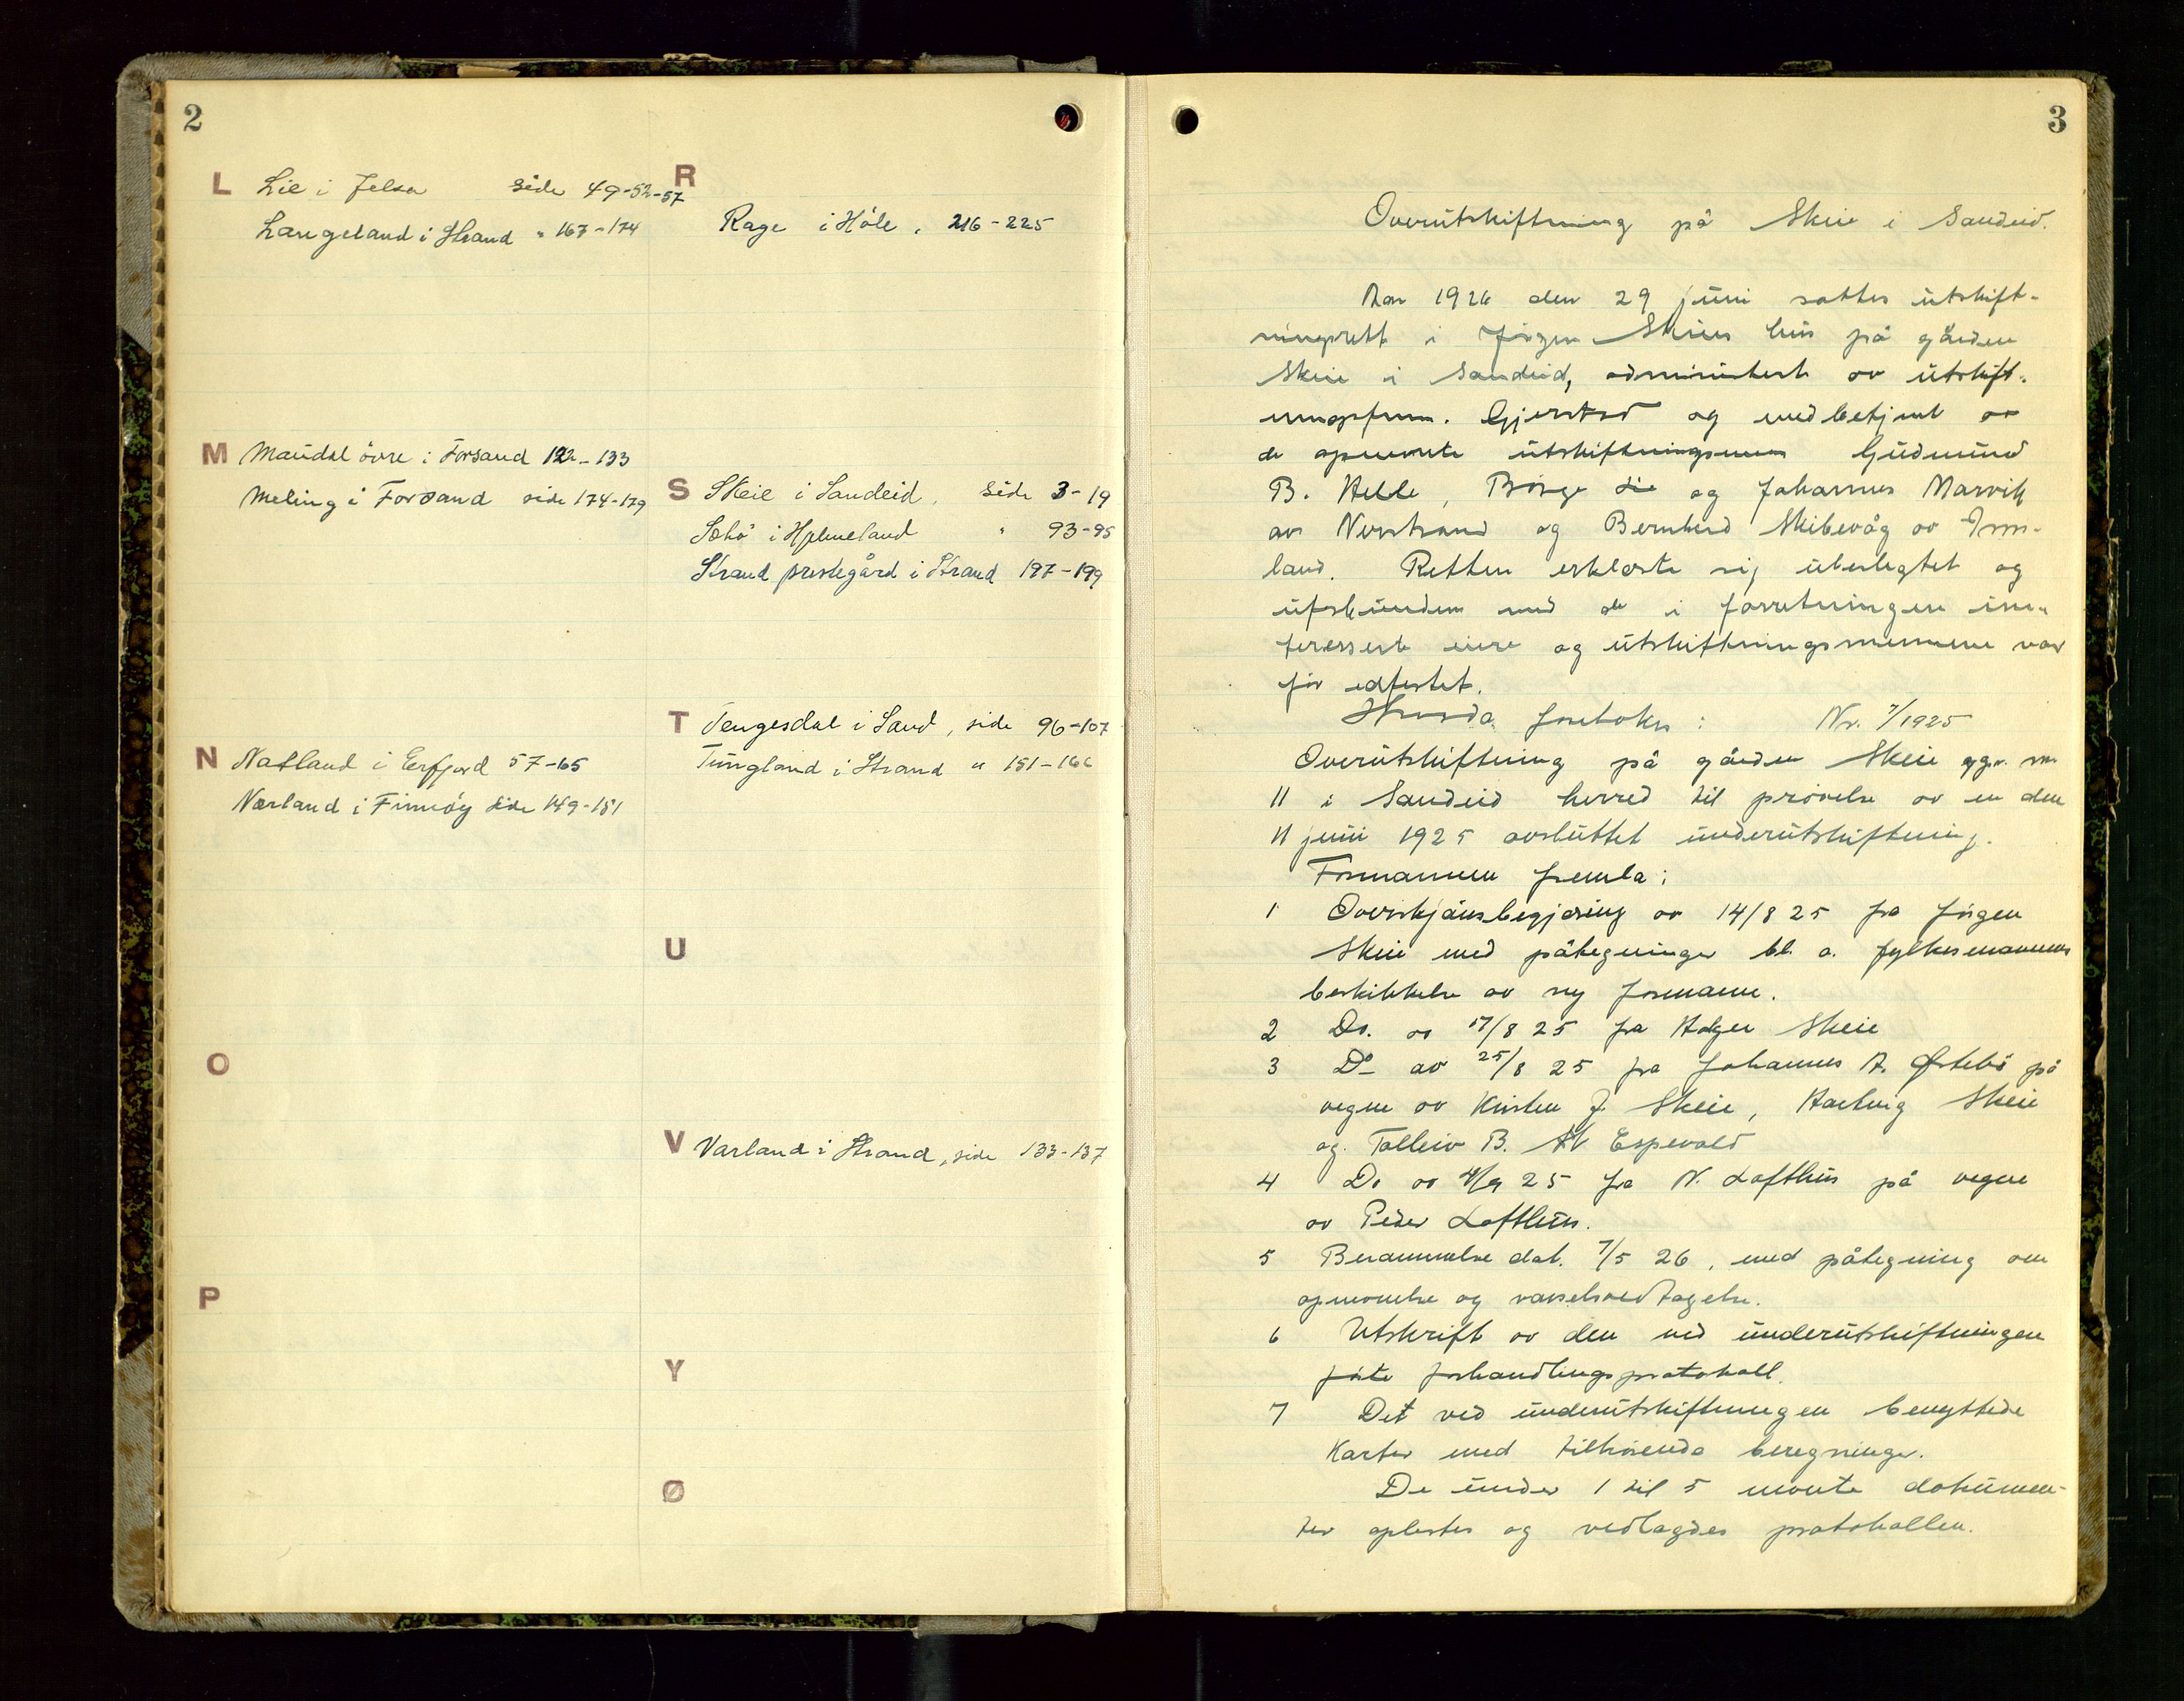 2
L Lie i Jelsa side 49-52-57
Langeland i Strand " 167-174
M Maudal övre i Forsand 122-133
Meling i Forsand side 174-179
N Natland i Erfjord 57-65
Narland i Finnöy side 149-151
O
P
R
Rage i Höle " 216-225
S Skeie i Sandeid, side 3-19
i Hjelmeland " 93-95
Strand prestegård i Strand 197-199
T Tengesdal i Sand, side 96-107
Tungland i Strand " 151-166
U
V Varland i Strand, side 133-137
Y
Ø
3
Overutskiftning på Skeie i Sandeid.
1926 den 29 juni sattes utskift-
ningsrett i Jörgen Skeies hus på gården
Skeie i Sandeid, administrert av utskift-
ningsform. Gjerstad og medbetjent av
de opnevnte utskiftningsmenn Gudmund
B. Helle, Börge Lie og Johannes Marvik
av Nerstrand og Bernhard Skibevåg av Im-
land. Retten erklærte sig ubeslegtet og
ubeskyndet med de i forretningen in-
teresserte eiere og utskiftningsmennene var
för edfestet.
foretokes: Nr. 7/1925
Overutskiftning på gården Skeie gr. nr.
11 i Sandeid herred til prövelse av en den
11 juni 1925 avsluttet underutskiftning.
Formannen fremla:
1 Overskjönsbegjæring av 14/8 25 fra Jörgen
Skeie med påtegninger bl. a. fylkesmannens
beskikkelse av ny formann.
2 Do. av 17/8 25 fra Holger Skeie
3 Do av 25/8 25 fra Johannes A. Østebö på
vegne av Kirsten J. Skeie, Hartvig Skeie
og Tolleiv B. Espevold
4 Do av 4/9 25 fra N. Lofthus på vegne
av Peder Lofthus.
5 Berammelse dat. 7/5 26, med påtegning om
opnevnelse og varselsvedtagelse.
6 Utskrift av den ved underutskiftningen
förte forhandlingsprotokoll.
7 Det ved underutskiftningen benyttede
Karter med tilhörende beregninger.
De under 1 til 5 nevnte dokumen-
ter oplestes og vedlagdes protokollen.